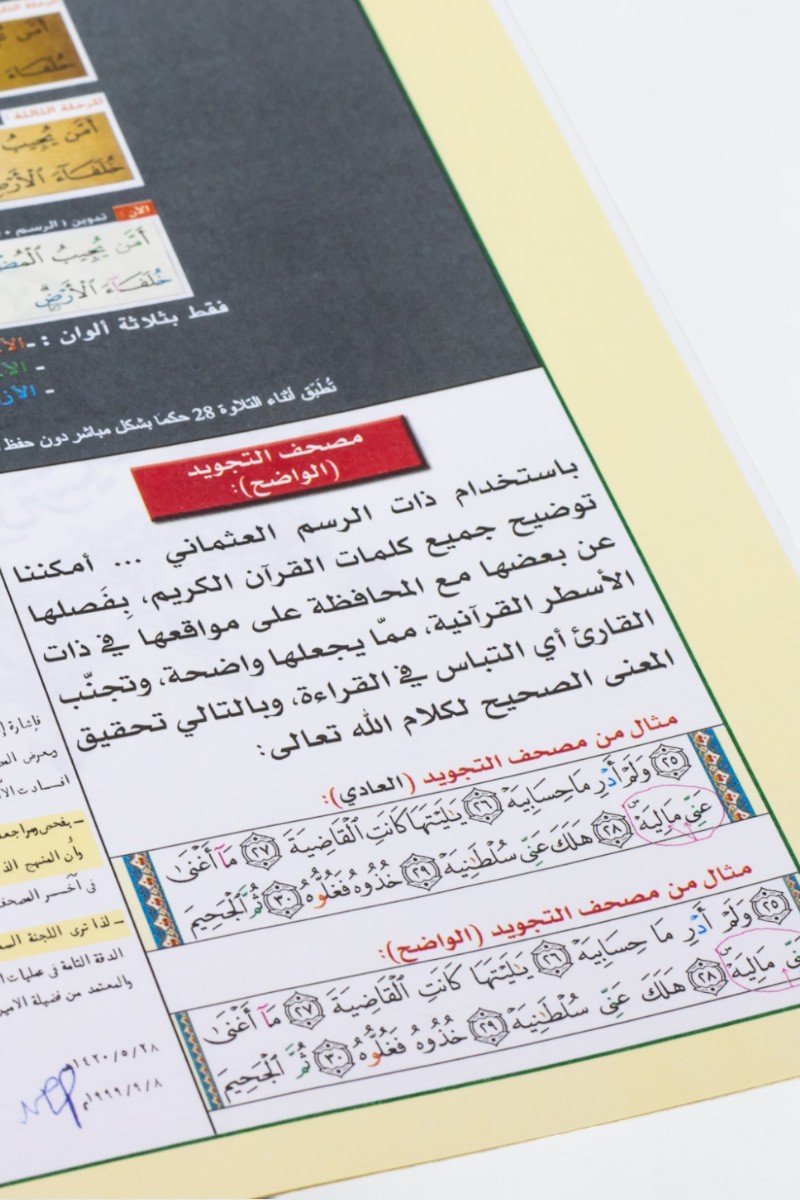 أمَّن
خُلَفَآءَ
المرحلة الثالثة
أَمَّن يُجِيبُ
خُلَفَآءَ ٱلْأَرْضِ
الآن :
تدوين ( الرسم +
أَمَّن يُجِيبُ
خُلَفَآءَ ٱلْأَرْضِ
فقط بثلاثة ألوان : -
-
-
تُطبَّق أثناء التلاوة 28 حكماً بشكل مباشر دون حفظ
مصحف التجويد
(الواضح):
باستخدام ذات الرسم العثماني ... أمكننا
توضيح جميع كلمات القرآن الكريم، بِفَصلها
عن بعضها مع المحافظة على مواقعها في ذات
الأسطر القرآنية، ممّا يجعلها واضحة، وتجنّب
القارئ أي التباس في القراءة، وبالتالي تحقيق
المعنى الصحيح لكلام الله تعالى:
مثال من مصحف التجويد (العادي):
٢٥ وَلَمْ أَدْرِ مَا حِسَابِيَهْ ٢٦ يَٰلَيْتَهَا كَانَتِ ٱلْقَاضِيَةَ ٢٧ مَآ أَغْنَىٰ
عَنِّي مَالِيَهْۜ ٢٨ هَلَكَ عَنِّي سُلْطَٰنِيَهْ ٢٩ خُذُوهُ فَغُلُّوهُ ٣٠ ثُمَّ ٱلْجَحِيمَ
مثال من مصحف التجويد (الواضح):
٢٥ وَلَمْ أَدْرِ مَا حِسَابِيَهْ ٢٦ يَٰلَيْتَهَا كَانَتِ ٱلْقَاضِيَةَ ٢٧ مَآ أَغْنَىٰ
مَالِيَهْۜ ٢٨ هَلَكَ عَنِّي سُلْطَٰنِيَهْ ٢٩ خُذُوهُ فَغُلُّوهُ ٣٠ ثُمَّ ٱلْجَحِيمَ
فإشارة
وبحرف
افسادت
– بفحص ومراجعة
وأن المنهج
في آخر المصحف
– لذا ترى اللجنة
الدقة التامة في عمليات
والمعتمد من فضيلة الامين
١٤٢٠/٥/٢٨هـ
١٩٩٩/٩/٨م